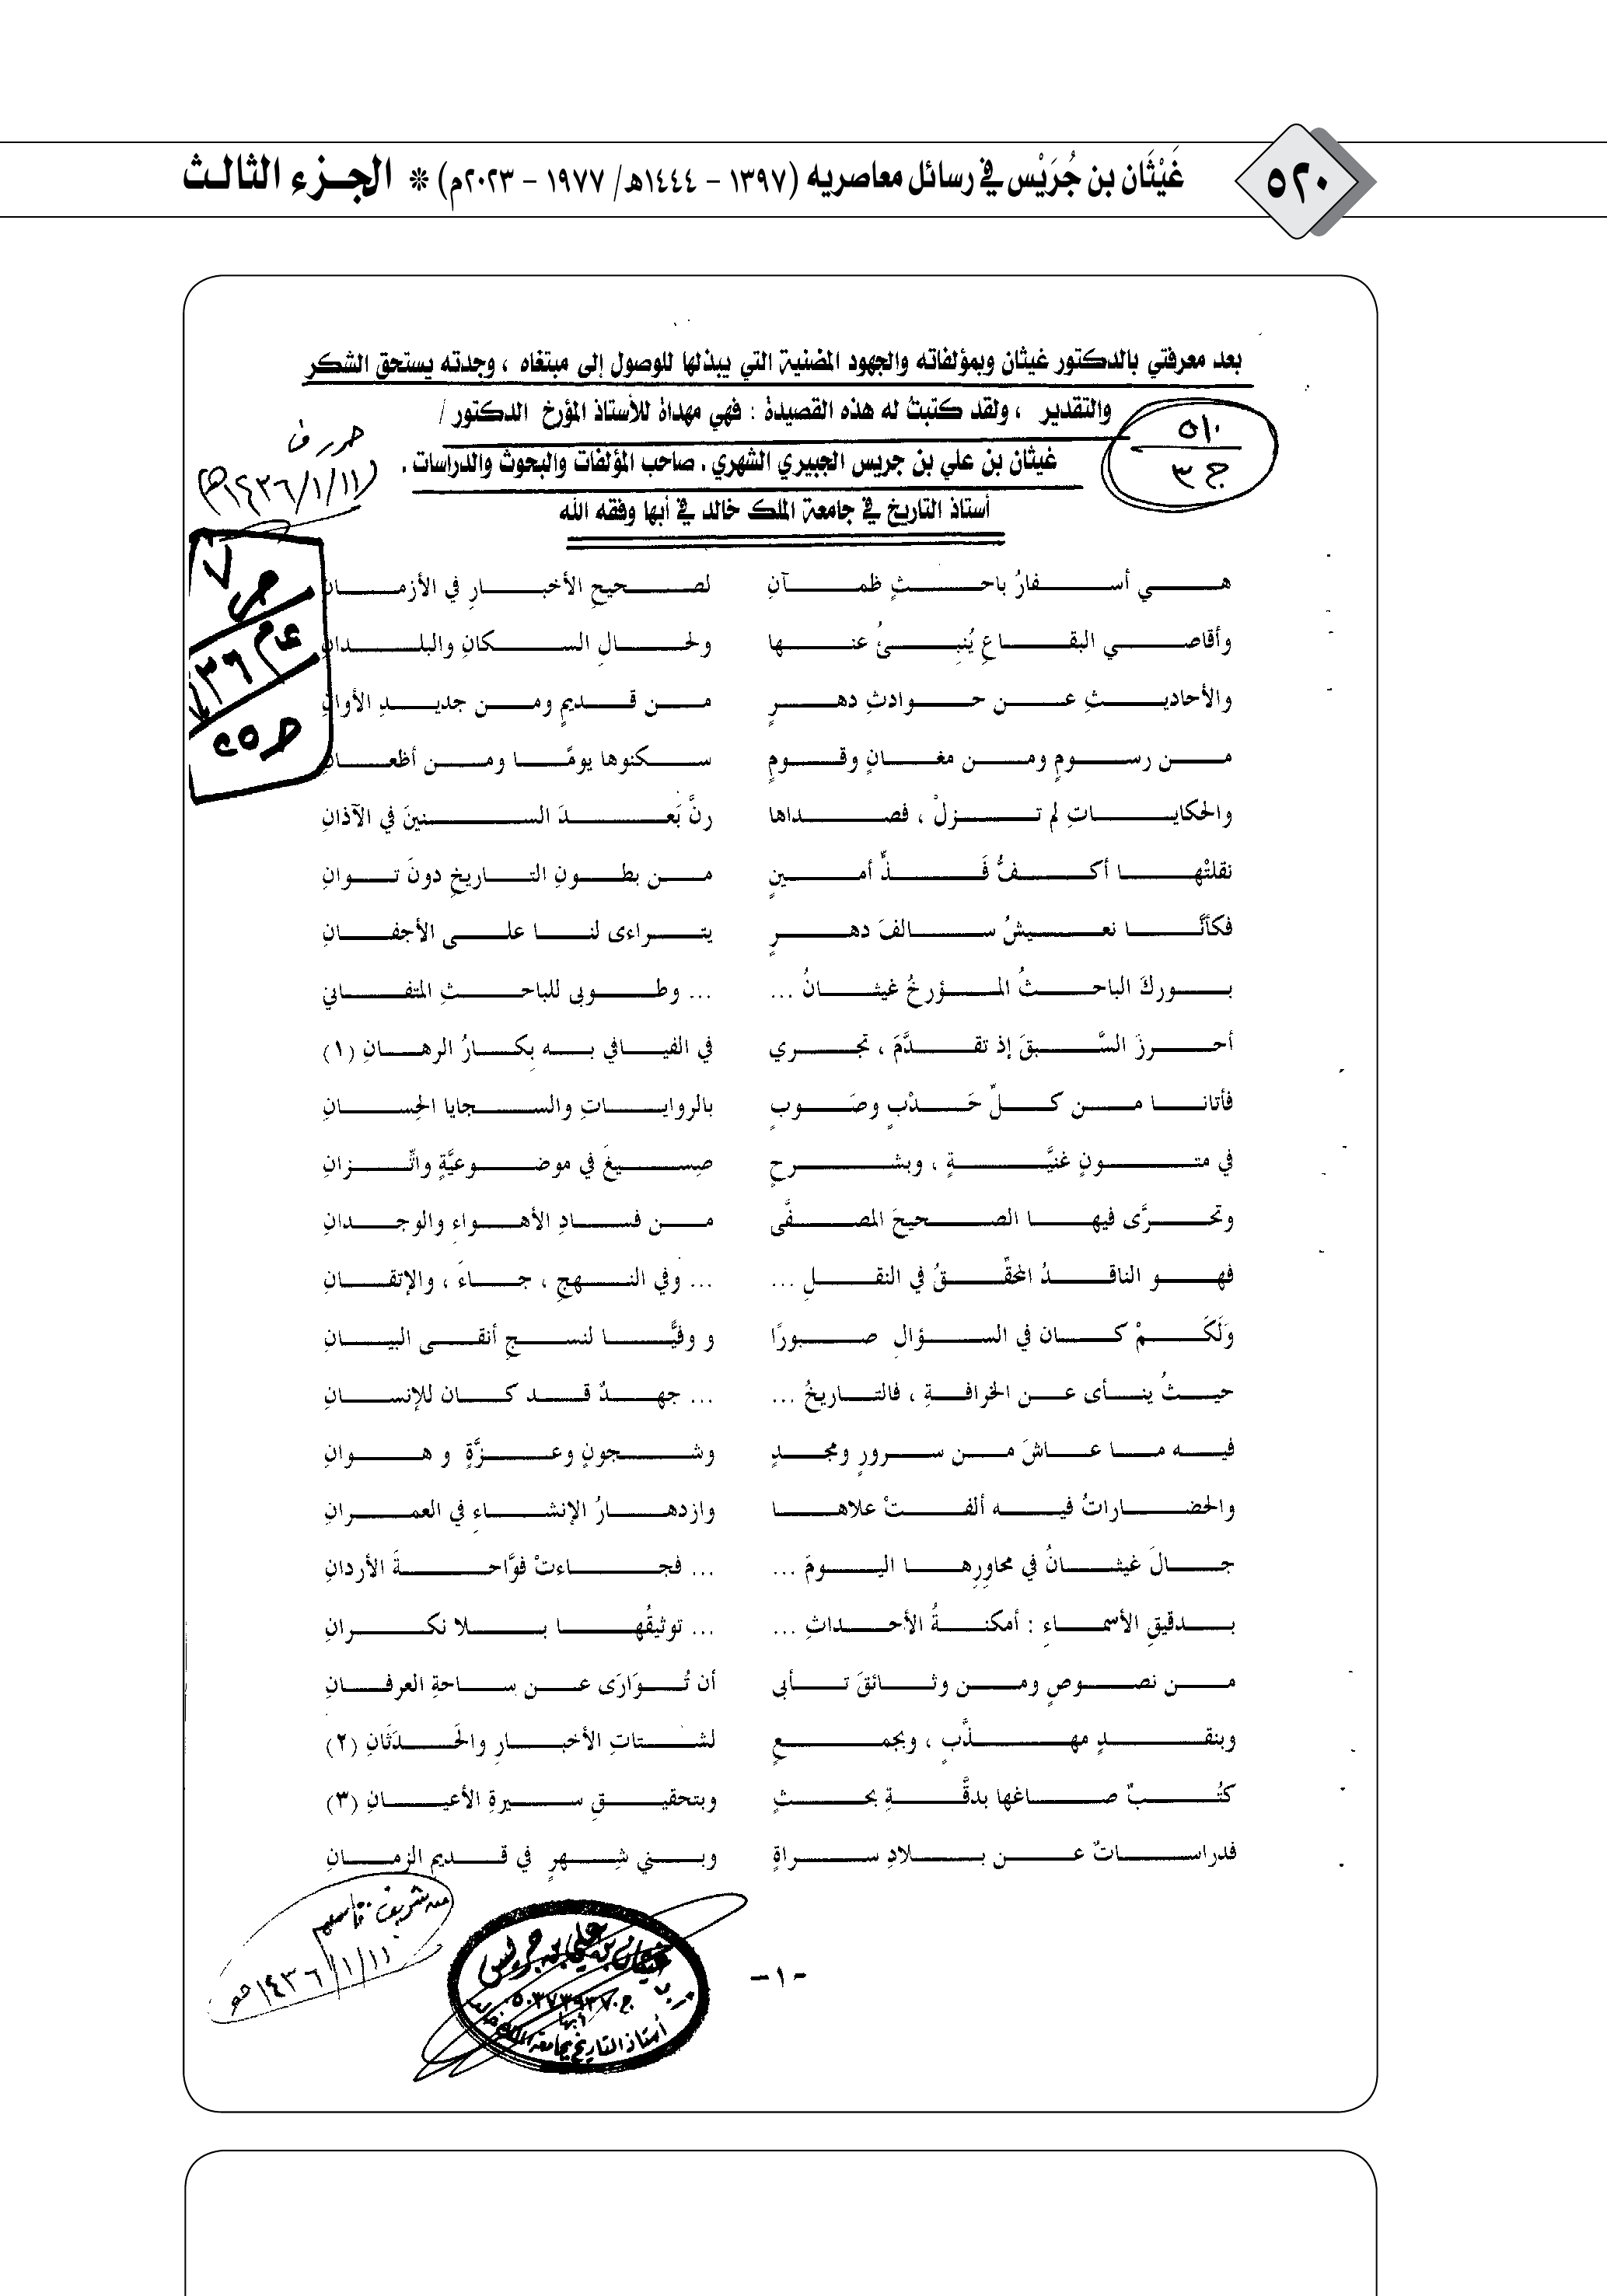 ٥٢٠
غَيْثَان بن جُرَيْس في رسائل معاصريه (١٣٩٧ - ١٤٤٤هـ/ ١٩٧٧ - ٢٠٢٣م) * الجزء الثالث
بعد معرفتي بالدكتور غيثان وبمؤلفاته والجهود المضنية التي يبذلها للوصول إلى مبتغاه ، وجدته يستحق الشكر
والتقدير ، ولقد كتبتُ له هذه القصيدة : فهي مهداة للأستاذ المؤرخ الدكتور /
غيثان بن علي بن جريس الجبيري الشهري . صاحب المؤلفات والبحوث والدراسات .
أستاذ التاريخ في جامعة الملك خالد في أبها وفقه الله
٥١٠
ج ٣
١٤٣٦/١/١١هـ
هي أسفارُ باحثٍ ظمآنِ لصحيحِ الأخبارِ في الأزمانِ
وأقاصي البقاعِ يُنبِئُ عنها ولحالِ السكانِ والبلدانِ
والأحاديثِ عن حوادثِ دهرٍ من قديمٍ ومن جديدِ الأوانِ
من رسومٍ ومن مغانٍ وقومٍ سكنوها يومًا ومن أظعانِ
والحكاياتِ لم تزلْ ، فصداها رنَّ بَعدَ السنينَ في الآذانِ
نقلتْها أكفُّ فَذٍّ أمينٍ من بطونِ التاريخِ دونَ توانِ
فكأنَّا نعيشُ سالفَ دهرٍ يتراءى لنا على الأجفانِ
بوركَ الباحثُ المؤرخُ غيثانُ ... ... وطوبى للباحثِ المتفاني
أحرزَ السَّبقَ إذ تقدَّمَ ، تجري في الفيافي به بِكارُ الرهانِ (١)
فأتانا من كلِّ حَدْبٍ وصَوبٍ بالرواياتِ والسجايا الحِسانِ
في متونٍ غنيَّةٍ ، وبشرحٍ صِيغَ في موضوعيَّةٍ واتِّزانِ
وتحرَّى فيها الصحيحَ المصفَّى من فسادِ الأهواءِ والوجدانِ
فهو الناقدُ المحقِّقُ في النقلِ ... ... وفي النهجِ ، جاءَ ، والإتقانِ
وَلَكَمْ كان في السؤالِ صبورًا و وفيًّا لنسجِ أنقى البيانِ
حيثُ ينأى عن الخرافةِ ، فالتاريخُ ... ... جهدٌ قد كان للإنسانِ
فيه ما عاشَ من سرورٍ ومجدٍ وشجونٍ وعزَّةٍ و هوانِ
والحضاراتُ فيه ألفتْ علاها وازدهارُ الإنشاءِ في العمرانِ
جالَ غيثانُ في محاورِها اليومَ ... ... فجاءتْ فوَّاحةَ الأردانِ
بدقيقِ الأسماءِ : أمكنةُ الأحداثِ ... ... توثيقُها بلا نكرانِ
من نصوصٍ ومن وثائقَ تأبى أن تُوَارَى عن ساحةِ العرفانِ
وبنقدٍ مهذَّبٍ ، وبجمعٍ لشتاتِ الأخبارِ والحَدَثَانِ (٢)
كتُبٌ صاغها بدقَّةِ بحثٍ وبتحقيقِ سيرةِ الأعيانِ (٣)
فدراساتٌ عن بلادِ سراةٍ وبني شِهرٍ في قديمِ الزمانِ
-١-
غيثان بن علي بن جريس
أستاذ التاريخ بجامعة الملك خالد
أبها
١٤٣٦/١/١١هـ